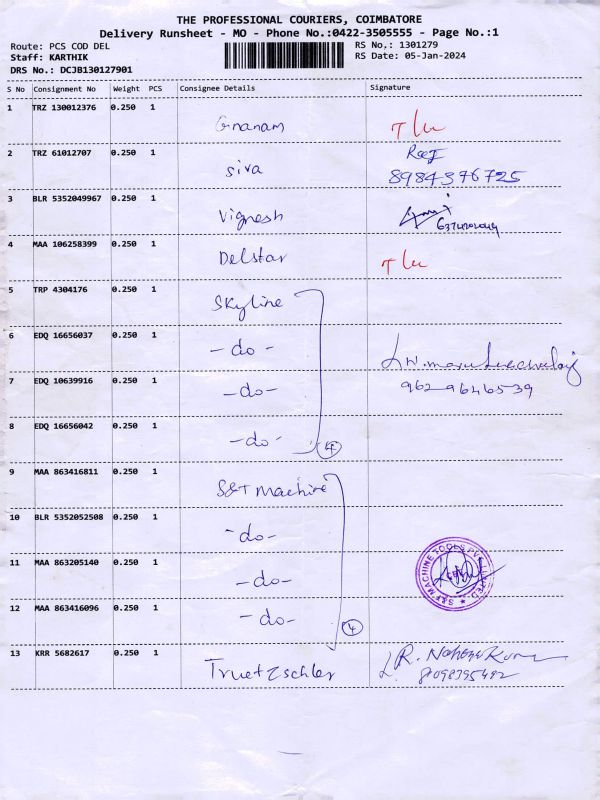 THE PROFESSIONAL COURIERS, COIMBATORE
Delivery Runsheet - MO - Phone No.:0422-3505555 - Page No.:1
Route: PCS COD DEL
RS No.: 1301279
Staff: KARTHIK
RS Date: 05-Jan-2024
DRS No.: DCJB130127901
S No Consignment No Weight PCS Consignee Details Signature
1 TRZ 130012376 0.250 1 Gnanam
2 TRZ 61012707 0.250 1 Siva 8984376725
3 BLR 5352049967 0.250 1 Vignesh
4 MAA 106258399 0.250 1 Delstar
5 TRP 4304176 0.250 1 Skyline
6 EDQ 16656037 0.250 1 - do -
7 EDQ 10639916 0.250 1 - do - 9629646539
8 EDQ 16656042 0.250 1 - do - 4
9 MAA 863416811 0.250 1 S&T Machine
10 BLR 5352052508 0.250 1 - do -
11 MAA 863205140 0.250 1 - do -
S&T MACHINE TOOLS PVT LIMITED
12 MAA 863416096 0.250 1 - do - 4
13 KRR 5682617 0.250 1 Truetzschler R.